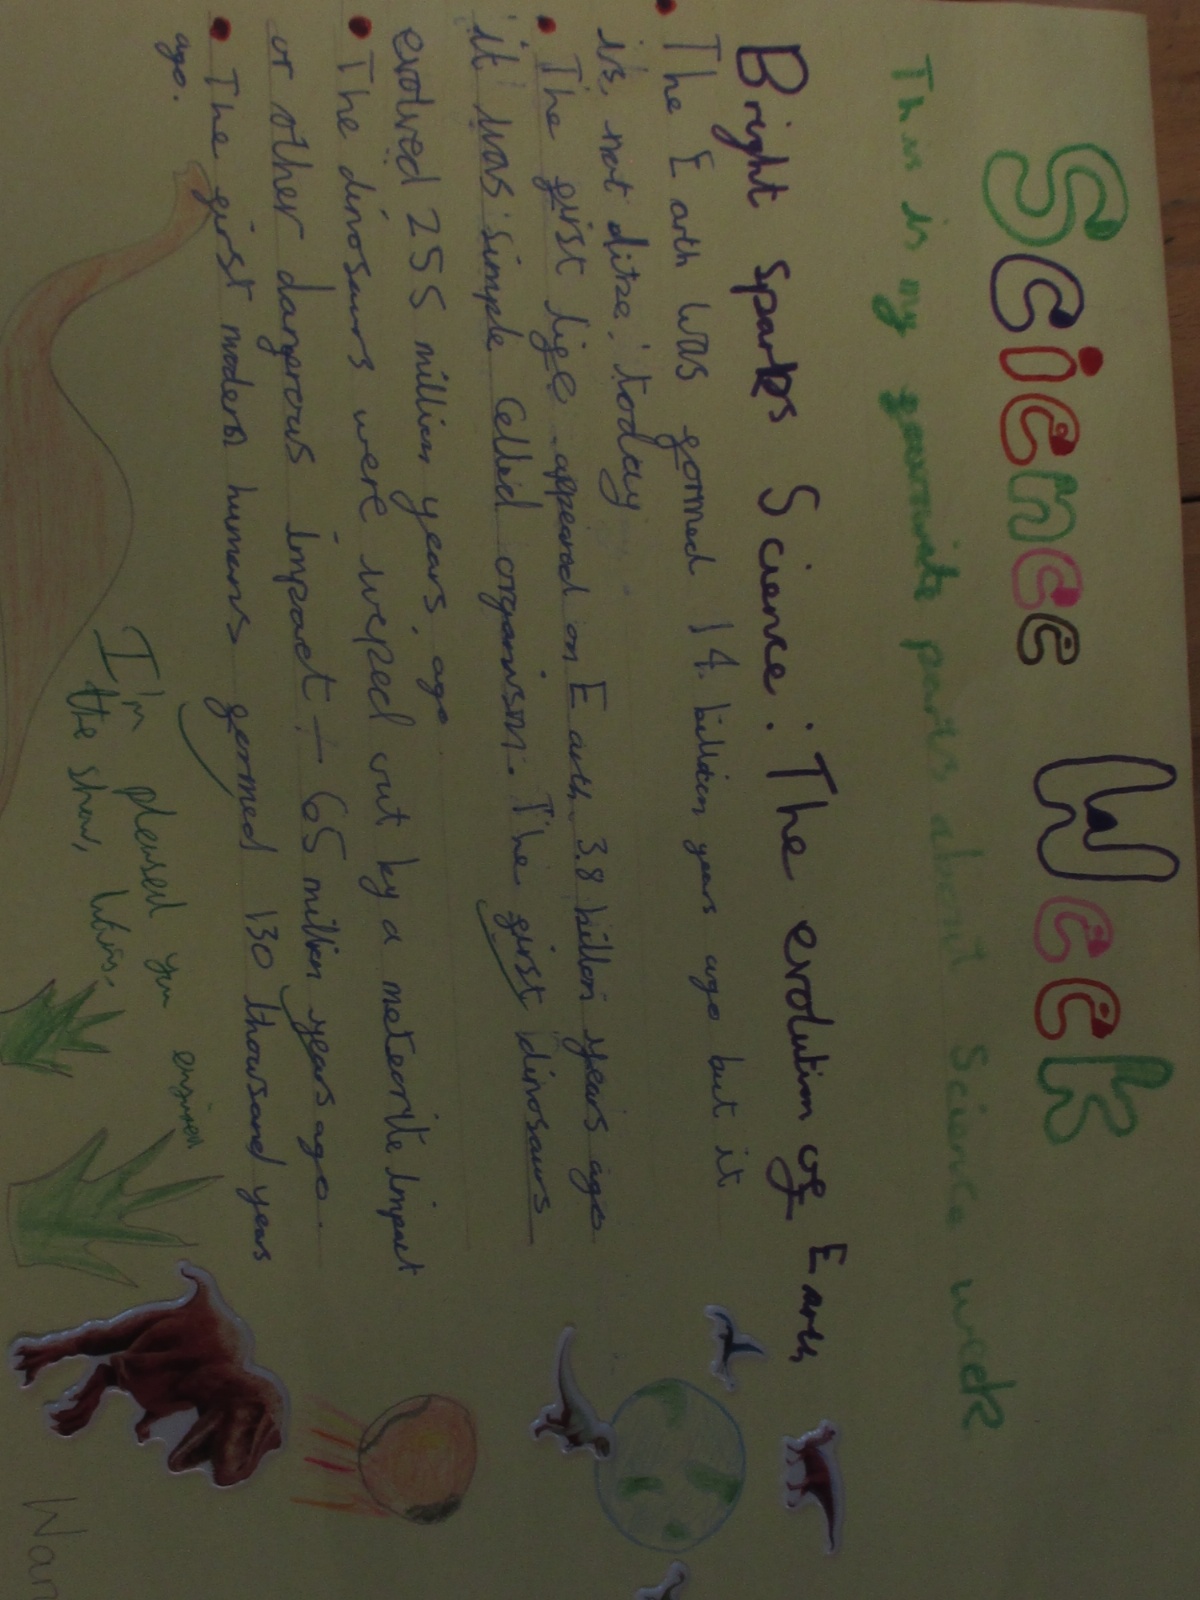 Science Week
This is my favourite parts about Science week
Bright sparks Science: The evolution of Earth
The Earth was formed 14 billion years ago but it
is not today
The first life appeared on Earth 3.8 billion years ago
it was simple celled organism. The first dinosaurs
evolved 255 million years ago
The dinosaurs were weped out by a meteorite impact
or other dangerous impact - 65 million years ago.
The first modern humans formed 130 thousand years
ago.
I'm pleased you
the show,
War